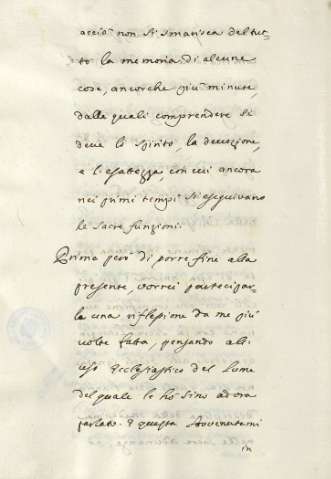 acciò non si smarisca del tut-
to la memoria di alcune
cose, ancorche più minute,
dalle quali comprendere si
deve lo spirito, la devozione,
e l'esattezza, con cui ancora
nei primi tempi si eseguivano
le sacre funzioni.
Prima però di porre fine alla
presente, vorrei participar-
la una riflessione da me più
volte fatta, pensando all'
uso Ecclesiastico del lume
del quale le hò sino ad ora
parlato. E questa sovvenutami
in